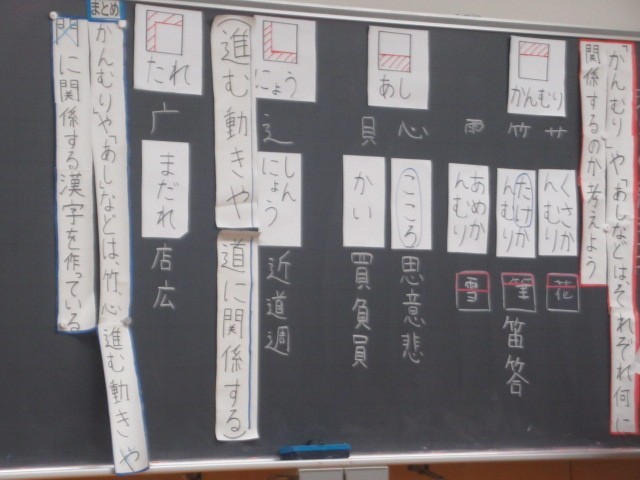 「かんむり」や「あし」などはそれぞれ何に
関係するのか考えよう
かんむり
艹
竹
雨
くさかんむり
たけかんむり
あめかんむり
花
筆
雪
笛答
あし
心
貝
こころ
かい
思意悲
買負員
にょう
辶
しんにょう
近道週
(進む動きや
道に関係する)
たれ
广
まだれ
店広
まとめ
かんむりや「あし」などは、竹、心
進む動きや
に関係する漢字を作っている